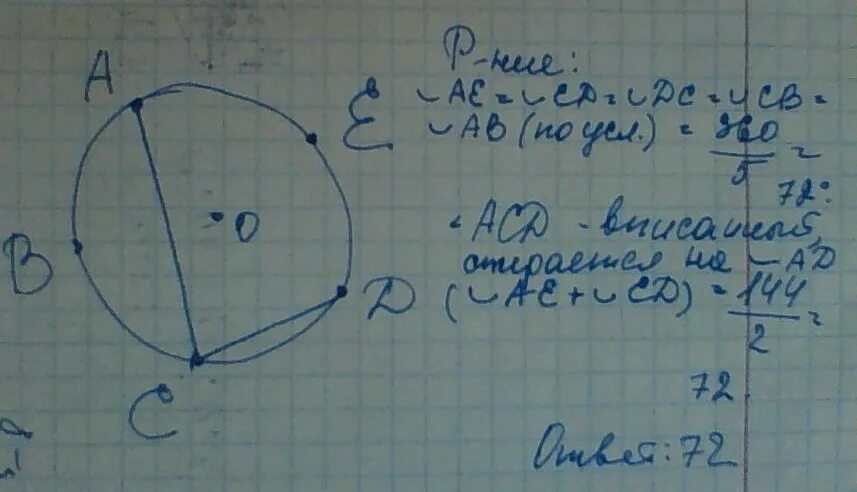 A
E
B
O
D
C
Р-ние:
◡AE = ◡ED = ◡DC = ◡CB =
◡AB (по усл.) = 360/5 =
72°
∠ACD - вписанный,
опирается на ◡AD
(◡AE + ◡ED) = 144/2 =
72
Ответ: 72